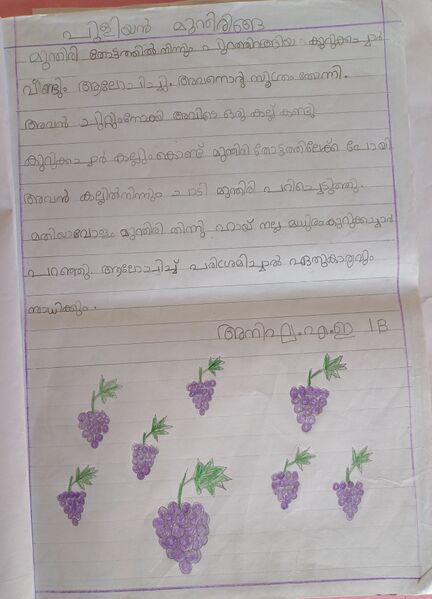 പുളിയൻ മുന്തിരിങ്ങ
മുന്തിരി തോട്ടത്തിൽ നിന്നും പുറത്തിറങ്ങിയ കുറുക്കച്ചാർ
വീണ്ടും ആലോചിച്ചു. അവനൊരു സൂത്രം തോന്നി.
അവൻ ചുറ്റുംനോക്കി അവിടെ ഒരു കല്ല് കണ്ടു
കുറുക്കച്ചാർ കല്ലുംകൊണ്ട് മുന്തിരി തോട്ടത്തിലേക്ക് പോയി
അവൻ കല്ലിൽനിന്നും ചാടി മുന്തിരി പറിച്ചെടുത്തു.
മതിയാവോളം മുന്തിരി തിന്നു ഹായ് നല്ല മധുരം കുറുക്കച്ചാർ
പറഞ്ഞു. ആലോചിച്ച് പരിശ്രമിച്ചാൽ ഏതുകാര്യവും
സാധിക്കും.
എ.ഇ 1B